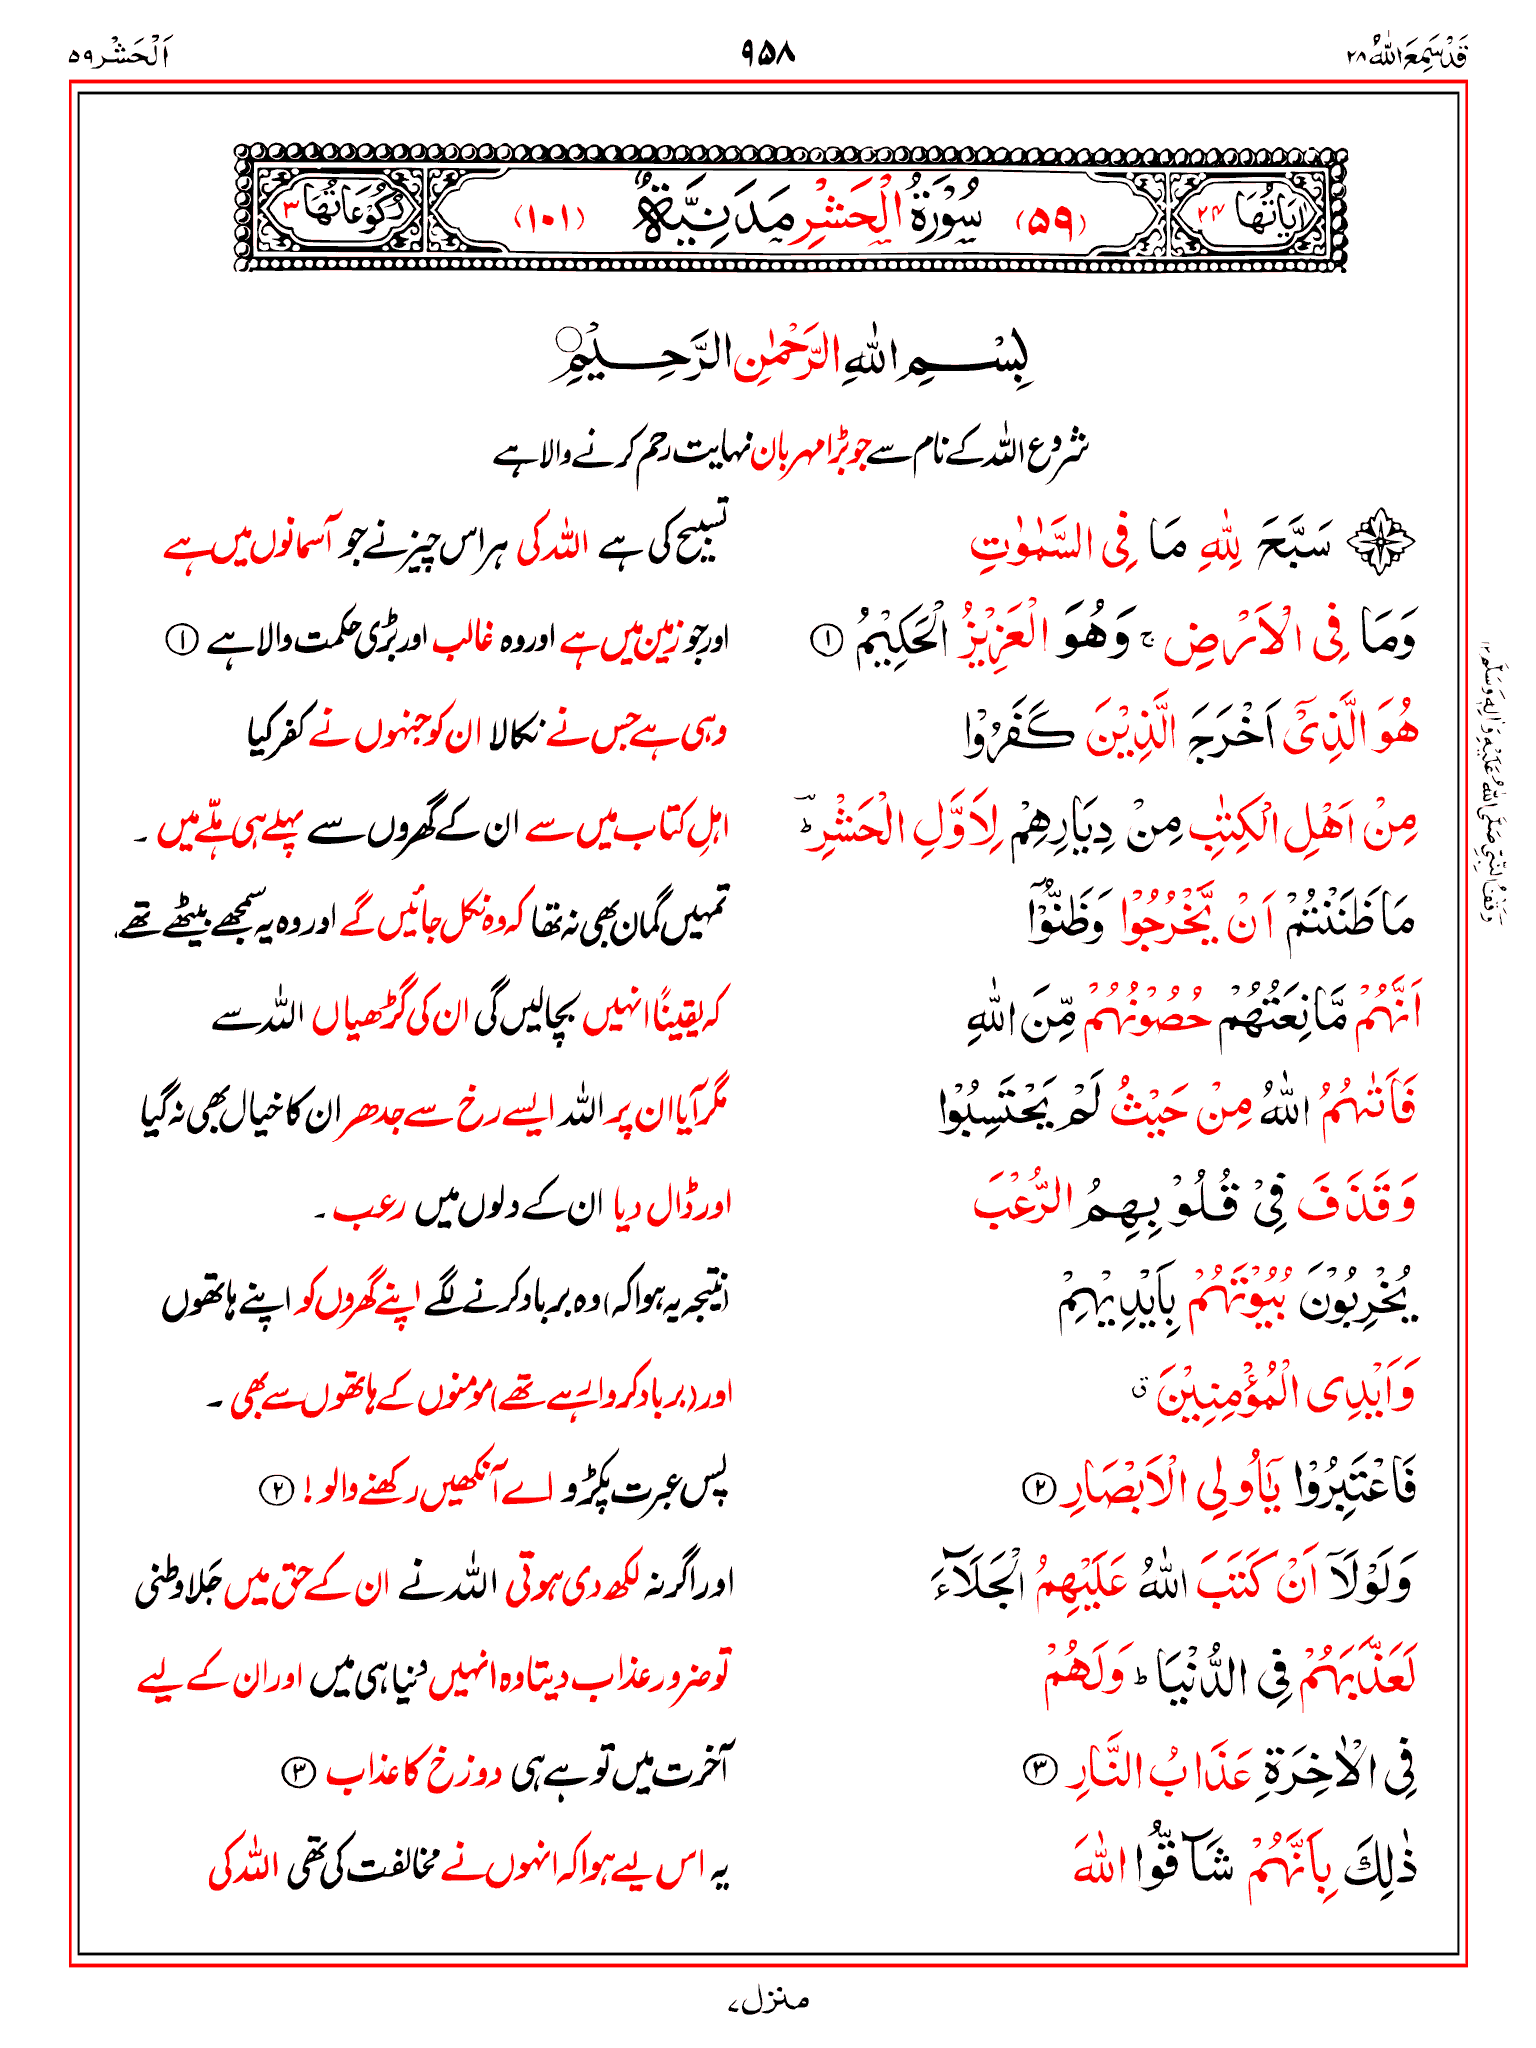 قَدْ سَمِعَ اللّٰهُ ٢٨
٩٥٨
اَلْحَشْر ٥٩
اٰيَاتُهَا ٢٤
(٥٩) سُوْرَةُ الْحَشْرِ مَدَنِيَّةٌ (١٠١)
رُكُوْعَاتُهَا ٣
بِسْمِ اللّٰهِ الرَّحْمٰنِ الرَّحِيْمِ
شروع اللہ کے نام سے جو بڑا مہربان نہایت رحم کرنے والا ہے
سَبَّحَ لِلّٰهِ مَا فِى السَّمٰوٰتِ
تسبیح کی ہے اللہ کی ہر اس چیز نے جو آسمانوں میں ہے
وَمَا فِى الْاَرْضِ ۚ وَهُوَ الْعَزِيْزُ الْحَكِيْمُ ①
اور جو زمین میں ہے اور وہ غالب اور بڑی حکمت والا ہے ①
هُوَ الَّذِىْۤ اَخْرَجَ الَّذِيْنَ كَفَرُوْا
وہی ہے جس نے نکالا ان کو جنہوں نے کفر کیا
مِنْ اَهْلِ الْكِتٰبِ مِنْ دِيَارِهِمْ لِاَوَّلِ الْحَشْرِ ؕ
اہلِ کتاب میں سے ان کے گھروں سے پہلے ہی ہلّے میں ۔
مَا ظَنَنْتُمْ اَنْ يَّخْرُجُوْا وَظَنُّوْۤا
تمہیں گمان بھی نہ تھا کہ وہ نکل جائیں گے اور وہ یہ سمجھے بیٹھے تھے
اَنَّهُمْ مَّانِعَتُهُمْ حُصُوْنُهُمْ مِّنَ اللّٰهِ
کہ یقینًا انہیں بچالیں گی ان کی گڑھیاں اللہ سے
فَاَتٰىهُمُ اللّٰهُ مِنْ حَيْثُ لَمْ يَحْتَسِبُوْا
مگر آیا ان پر اللہ ایسے رخ سے جدھر ان کا خیال بھی نہ گیا
وَقَذَفَ فِىْ قُلُوْبِهِمُ الرُّعْبَ
اور ڈال دیا ان کے دلوں میں رعب ۔
يُخْرِبُوْنَ بُيُوْتَهُمْ بِاَيْدِيْهِمْ
(نتیجہ یہ ہوا کہ) وہ برباد کرنے لگے اپنے گھروں کو اپنے ہاتھوں
وَاَيْدِى الْمُؤْمِنِيْنَ ۗ
اور (برباد کروا رہے تھے) مومنوں کے ہاتھوں سے بھی ۔
فَاعْتَبِرُوْا يٰۤاُولِى الْاَبْصَارِ ②
پس عبرت پکڑو اے آنکھیں رکھنے والو ! ②
وَلَوْلَاۤ اَنْ كَتَبَ اللّٰهُ عَلَيْهِمُ الْجَلَآءَ
اور اگر نہ لکھ دی ہوتی اللہ نے ان کے حق میں جَلا وطنی
لَعَذَّبَهُمْ فِى الدُّنْيَا ؕ وَلَهُمْ
تو ضرور عذاب دیتا وہ انہیں دنیا ہی میں اور ان کے لیے
فِى الْاٰخِرَةِ عَذَابُ النَّارِ ③
آخرت میں تو ہے ہی دوزخ کا عذاب ③
ذٰلِكَ بِاَنَّهُمْ شَآقُّوا اللّٰهَ
یہ اس لیے ہوا کہ انہوں نے مخالفت کی تھی اللہ کی
وَقْفُ النَّبِيِّ صَلَّى اللّٰهُ عَلَيْهِ وَاٰلِهٖ وَسَلَّمَ ١٢
منزل ٧